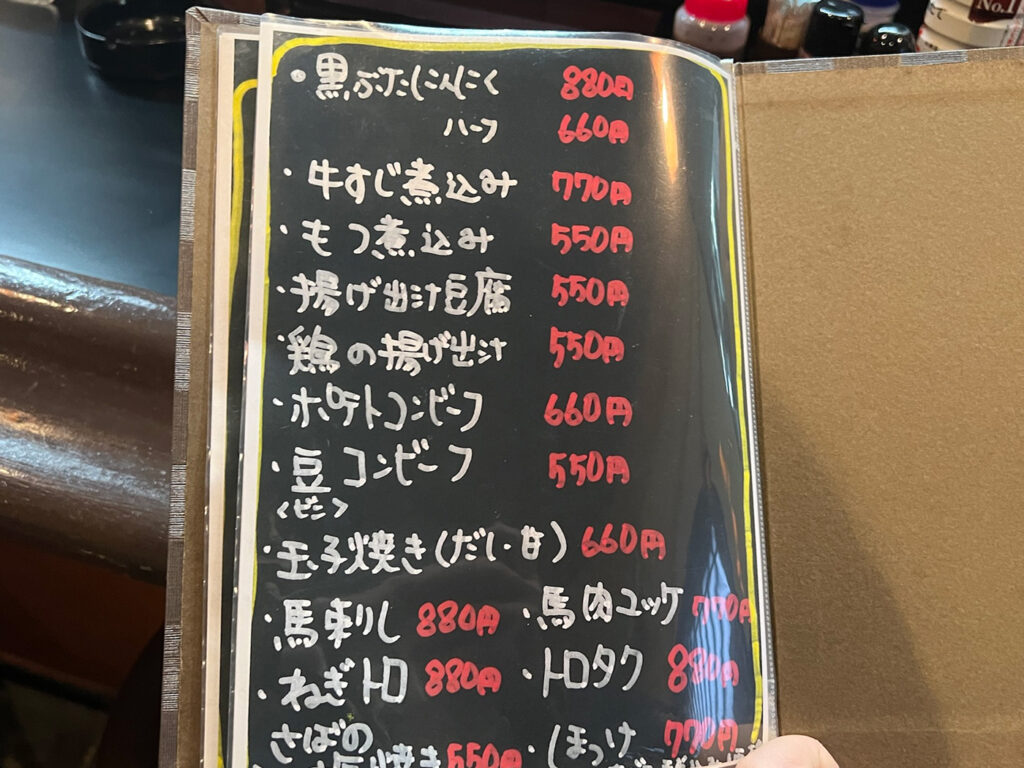 ・黒ぶたにんにく 880円
ハーフ 660円
・牛すじ煮込み 770円
・もつ煮込み 550円
・揚げ出汁豆腐 550円
・鶏の揚げ出汁 550円
・ポテトコンビーフ 660円
・豆コンビーフ 550円
<ビーン>
・玉子焼き(だし・甘) 660円
・馬刺し 880円 ・馬肉ユッケ 770円
・ねぎトロ 880円 ・トロタク 880円
さばの ・ほっけ 770円
焼き 550円
No.1